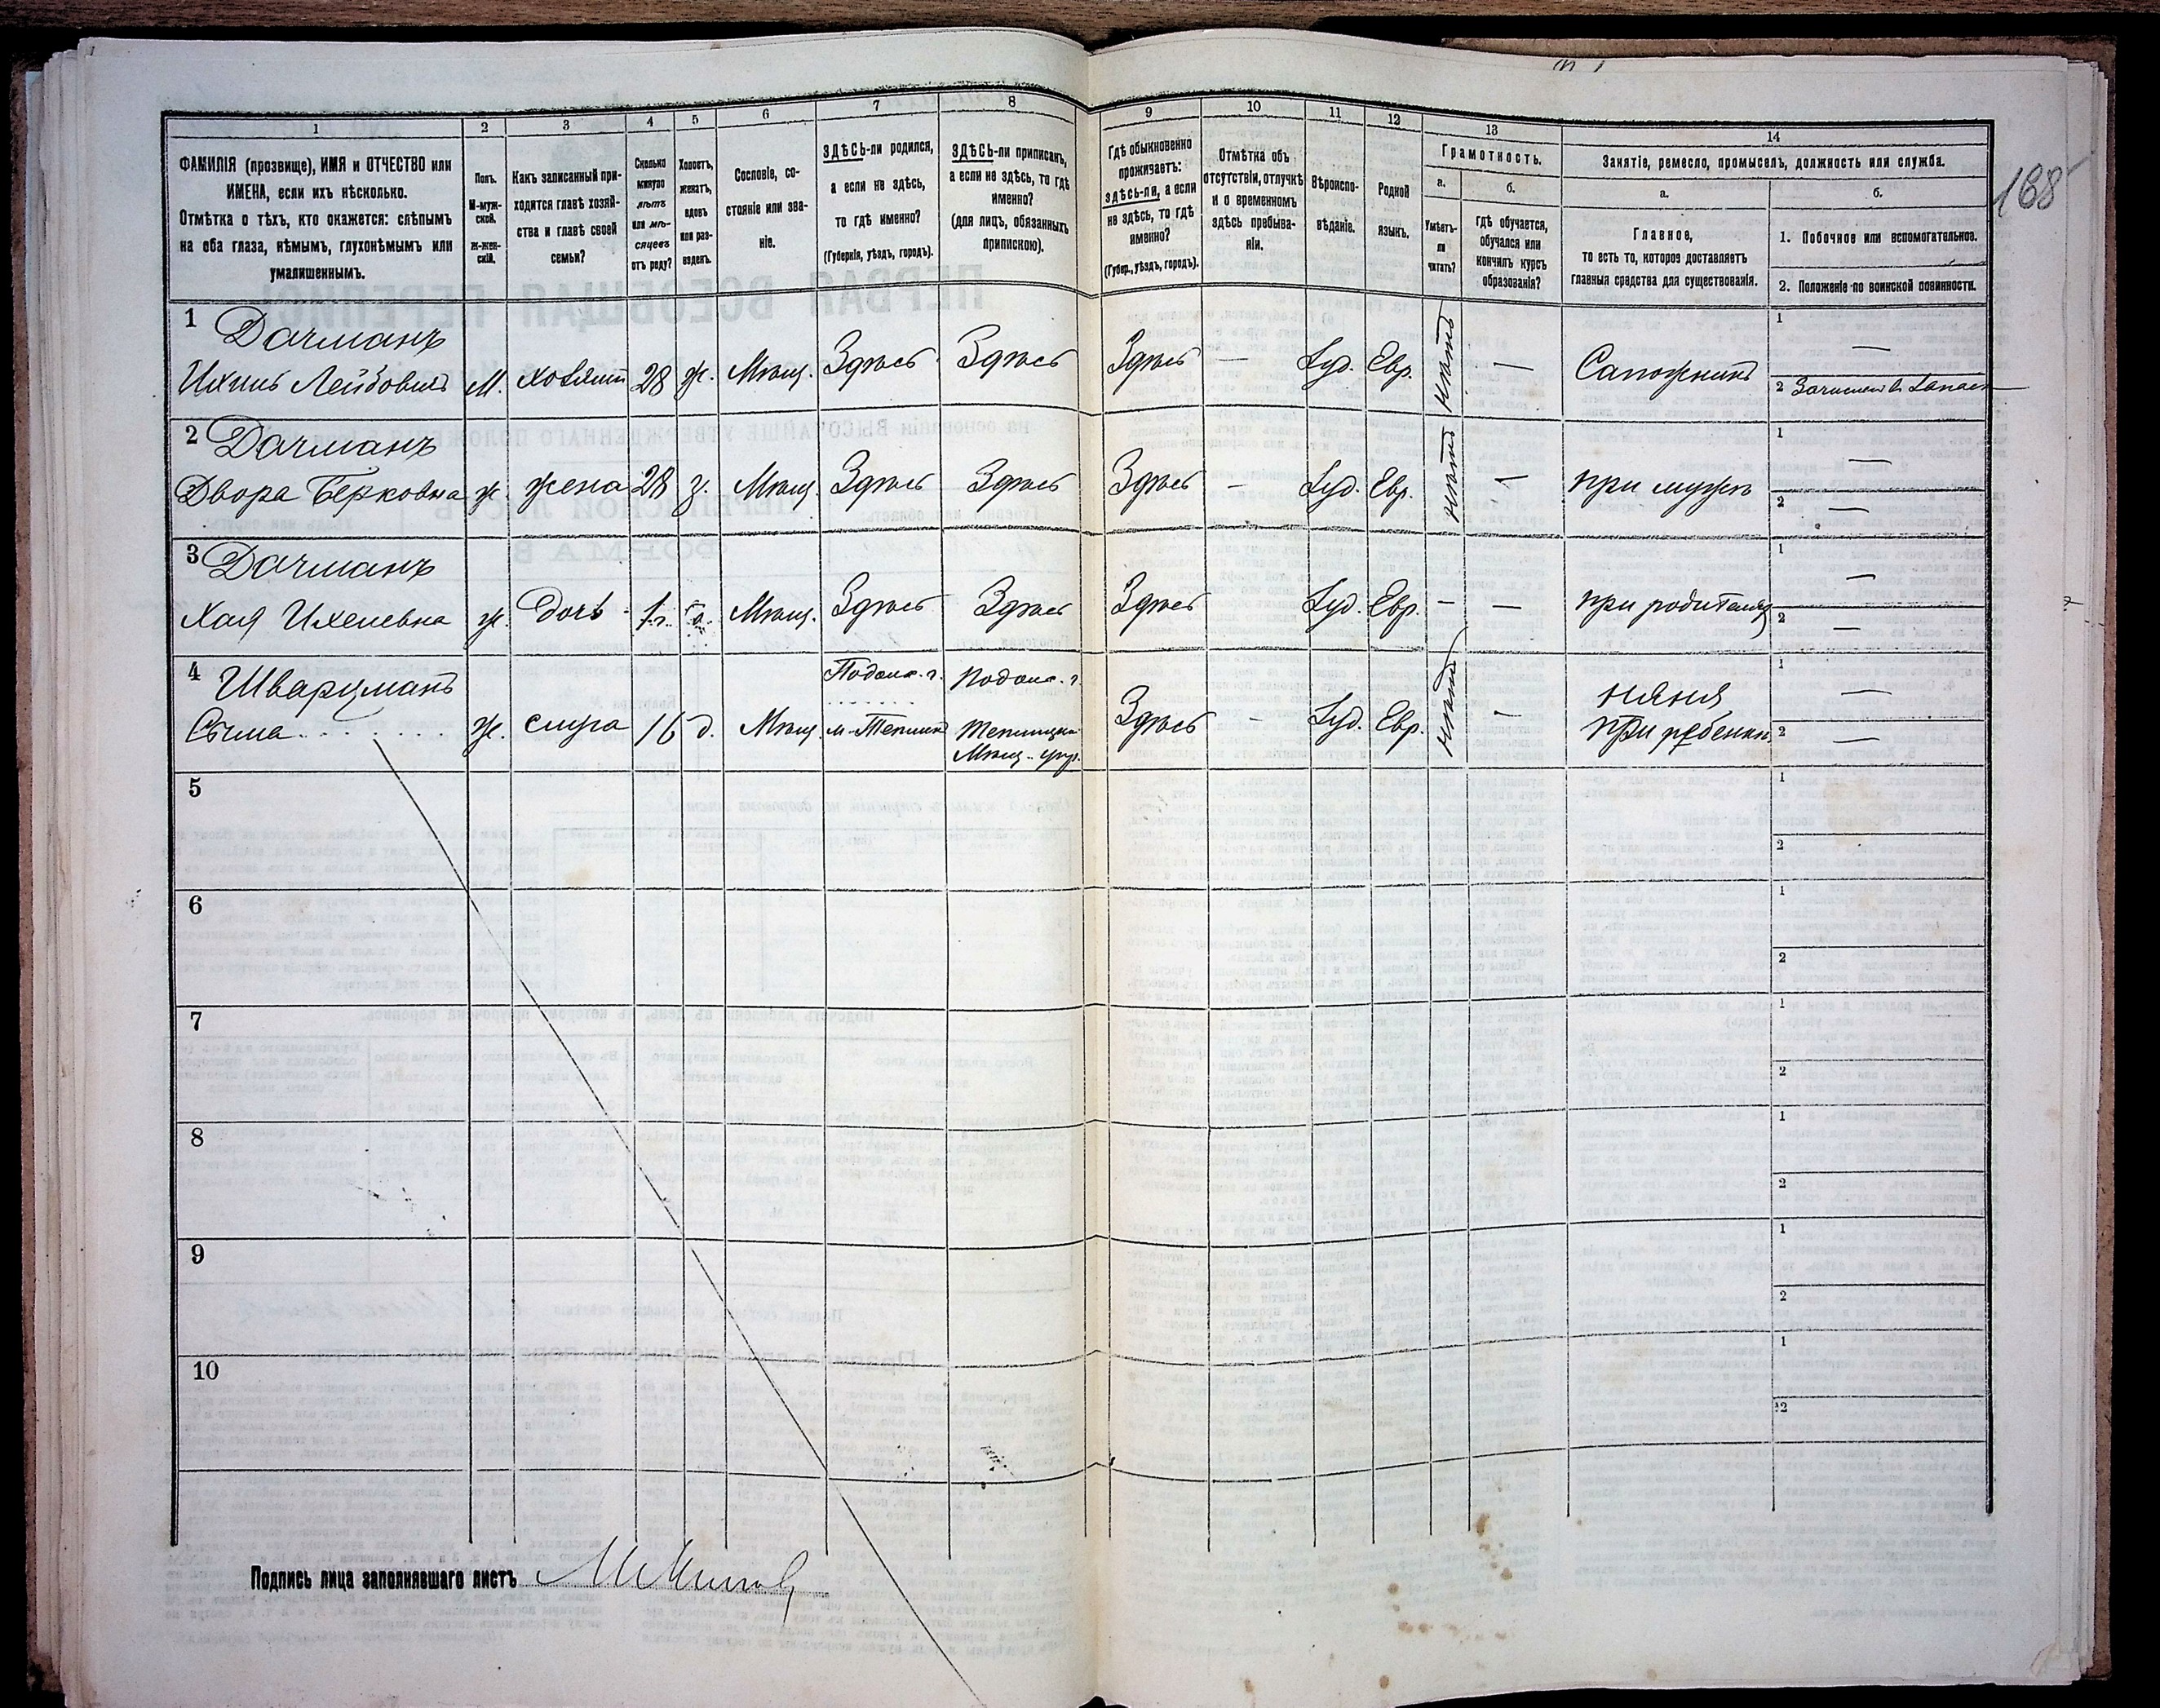 1
2
3
4
5
6
7
8
9
10
11
12
13
14
ФАМИЛІЯ (прозвище), ИМЯ и ОТЧЕСТВО или
ИМЕНА, если ихъ нѣсколько.
Отмѣтка о тѣхъ, кто окажется: слѣпымъ
на оба глаза, нѣмымъ, глухонѣмымъ или
умалишеннымъ.
Полъ.
М-муж-
ской.
Ж-жен-
скій.
Какъ записанный при-
ходится главѣ хозяй-
ства и главѣ своей
семьи?
Сколько
минуло
лѣтъ
или мѣ-
сяцевъ
отъ роду?
Холостъ,
женатъ,
вдовъ
или раз-
веденъ.
Сословіе, со-
стояніе или зва-
ніе.
ЗДѢСЬ-ли родился,
а если не здѣсь,
то гдѣ именно?
(Губернія, уѣздъ, городъ).
ЗДѢСЬ-ли приписанъ,
а если не здѣсь, то гдѣ
именно?
(для лицъ, обязанныхъ
припискою).
Гдѣ обыкновенно
проживаетъ:
ЗДѢСЬ-ли, а если
не здѣсь, то гдѣ
именно?
(Губер., уѣздъ, городъ).
Отмѣтка объ
отсутствіи, отлучкѣ
и о временномъ
здѣсь пребыва-
ніи.
Вѣроиспо-
вѣданіе.
Родной
языкъ.
Грамотность.
а.
Умѣетъ-
ли
читать?
б.
Гдѣ обучается,
обучался или
кончилъ курсъ
образованія?
Занятіе, ремесло, промыселъ, должность или служба.
а.
Главное,
то есть то, которое доставляетъ
главныя средства для существованія.
б.
1. Побочное или вспомогательное.
2. Положеніе по воинской повинности.
168
1
Дачманъ
Ихиль Лейбовичъ М. хозяинъ 28 ж. Мѣщ. Здѣсь Здѣсь Здѣсь — Іуд. Евр. нѣтъ — Сапожникъ
1 —
2 Зачисленъ въ запасъ
2
Дачманъ
Двора Берковна ж. жена 28 з. Мѣщ. Здѣсь Здѣсь Здѣсь — Іуд. Евр. нѣтъ — при мужѣ
1 —
2 —
3
Дачманъ
Хая Ихелевна ж. дочь 1 г. д. Мѣщ. Здѣсь Здѣсь Здѣсь Іуд. Евр. — — при родителяхъ
1 —
2 —
4
Шварцманъ
Сима ж. слуга 16 д. Мѣщ. Подол. г. Подол. г. Здѣсь — Іуд. Евр. нѣтъ — няня
при ребенкѣ
Мѣщ. упр.
1 —
2 —
5
1
2
6
1
2
7
1
2
8
1
2
9
1
2
10
1
2
Подпись лица заполнявшаго листъ